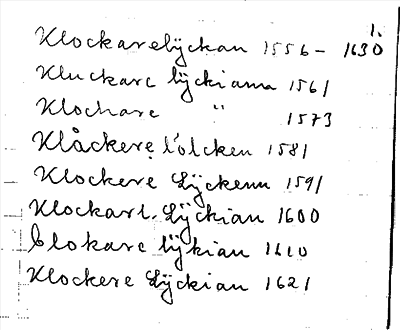 1.
Klockarelÿckan 1556 - 1630
Kluckare lÿckianna 1561
Klockare " 1573
Klåckere lölcken 1581
Klockere Lÿckenn 1591
Klockare Lÿckian 1600
Clokare lÿkian 1610
Klockere Lÿckian 1621